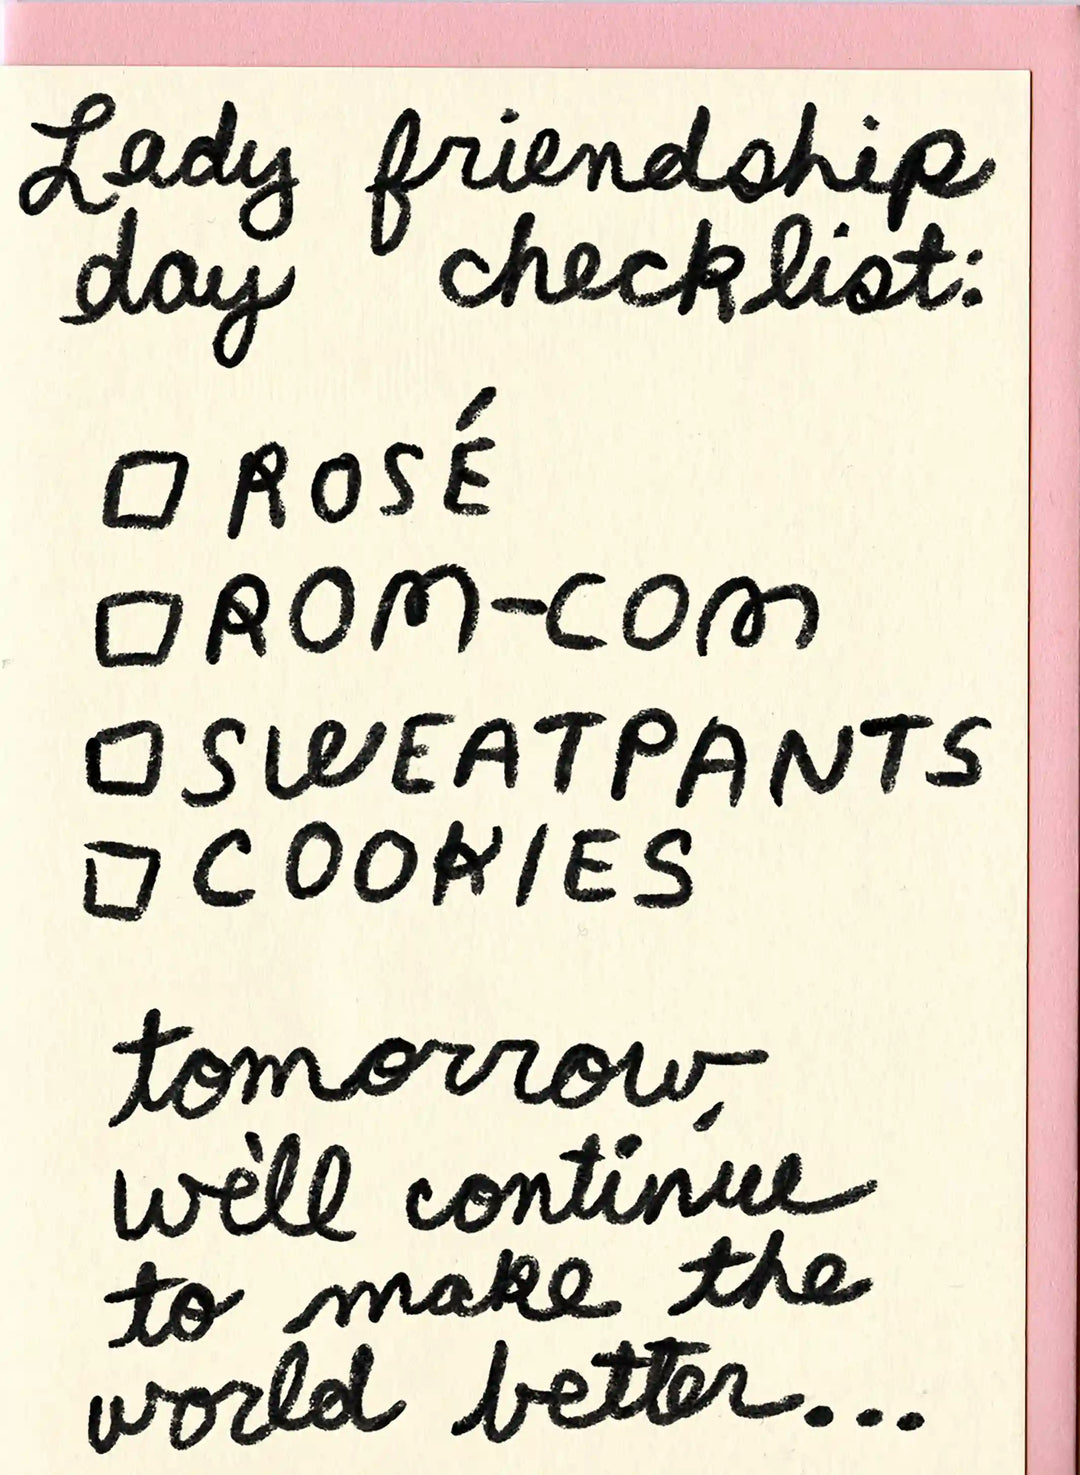 Lady friendship
day checklist:
ROSÉ
ROM-COM
SWEATPANTS
COOKIES
tomorrow,
we'll continue
to make the
world better...